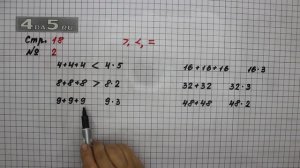 4RA5.RU
Стр. 18 >, <, =
№ 2
4+4+4 < 4·5 16+16+16 16·3
8+8+8 > 8·2 32+32 32·3
9+9+9 9·3 48+48 48·2